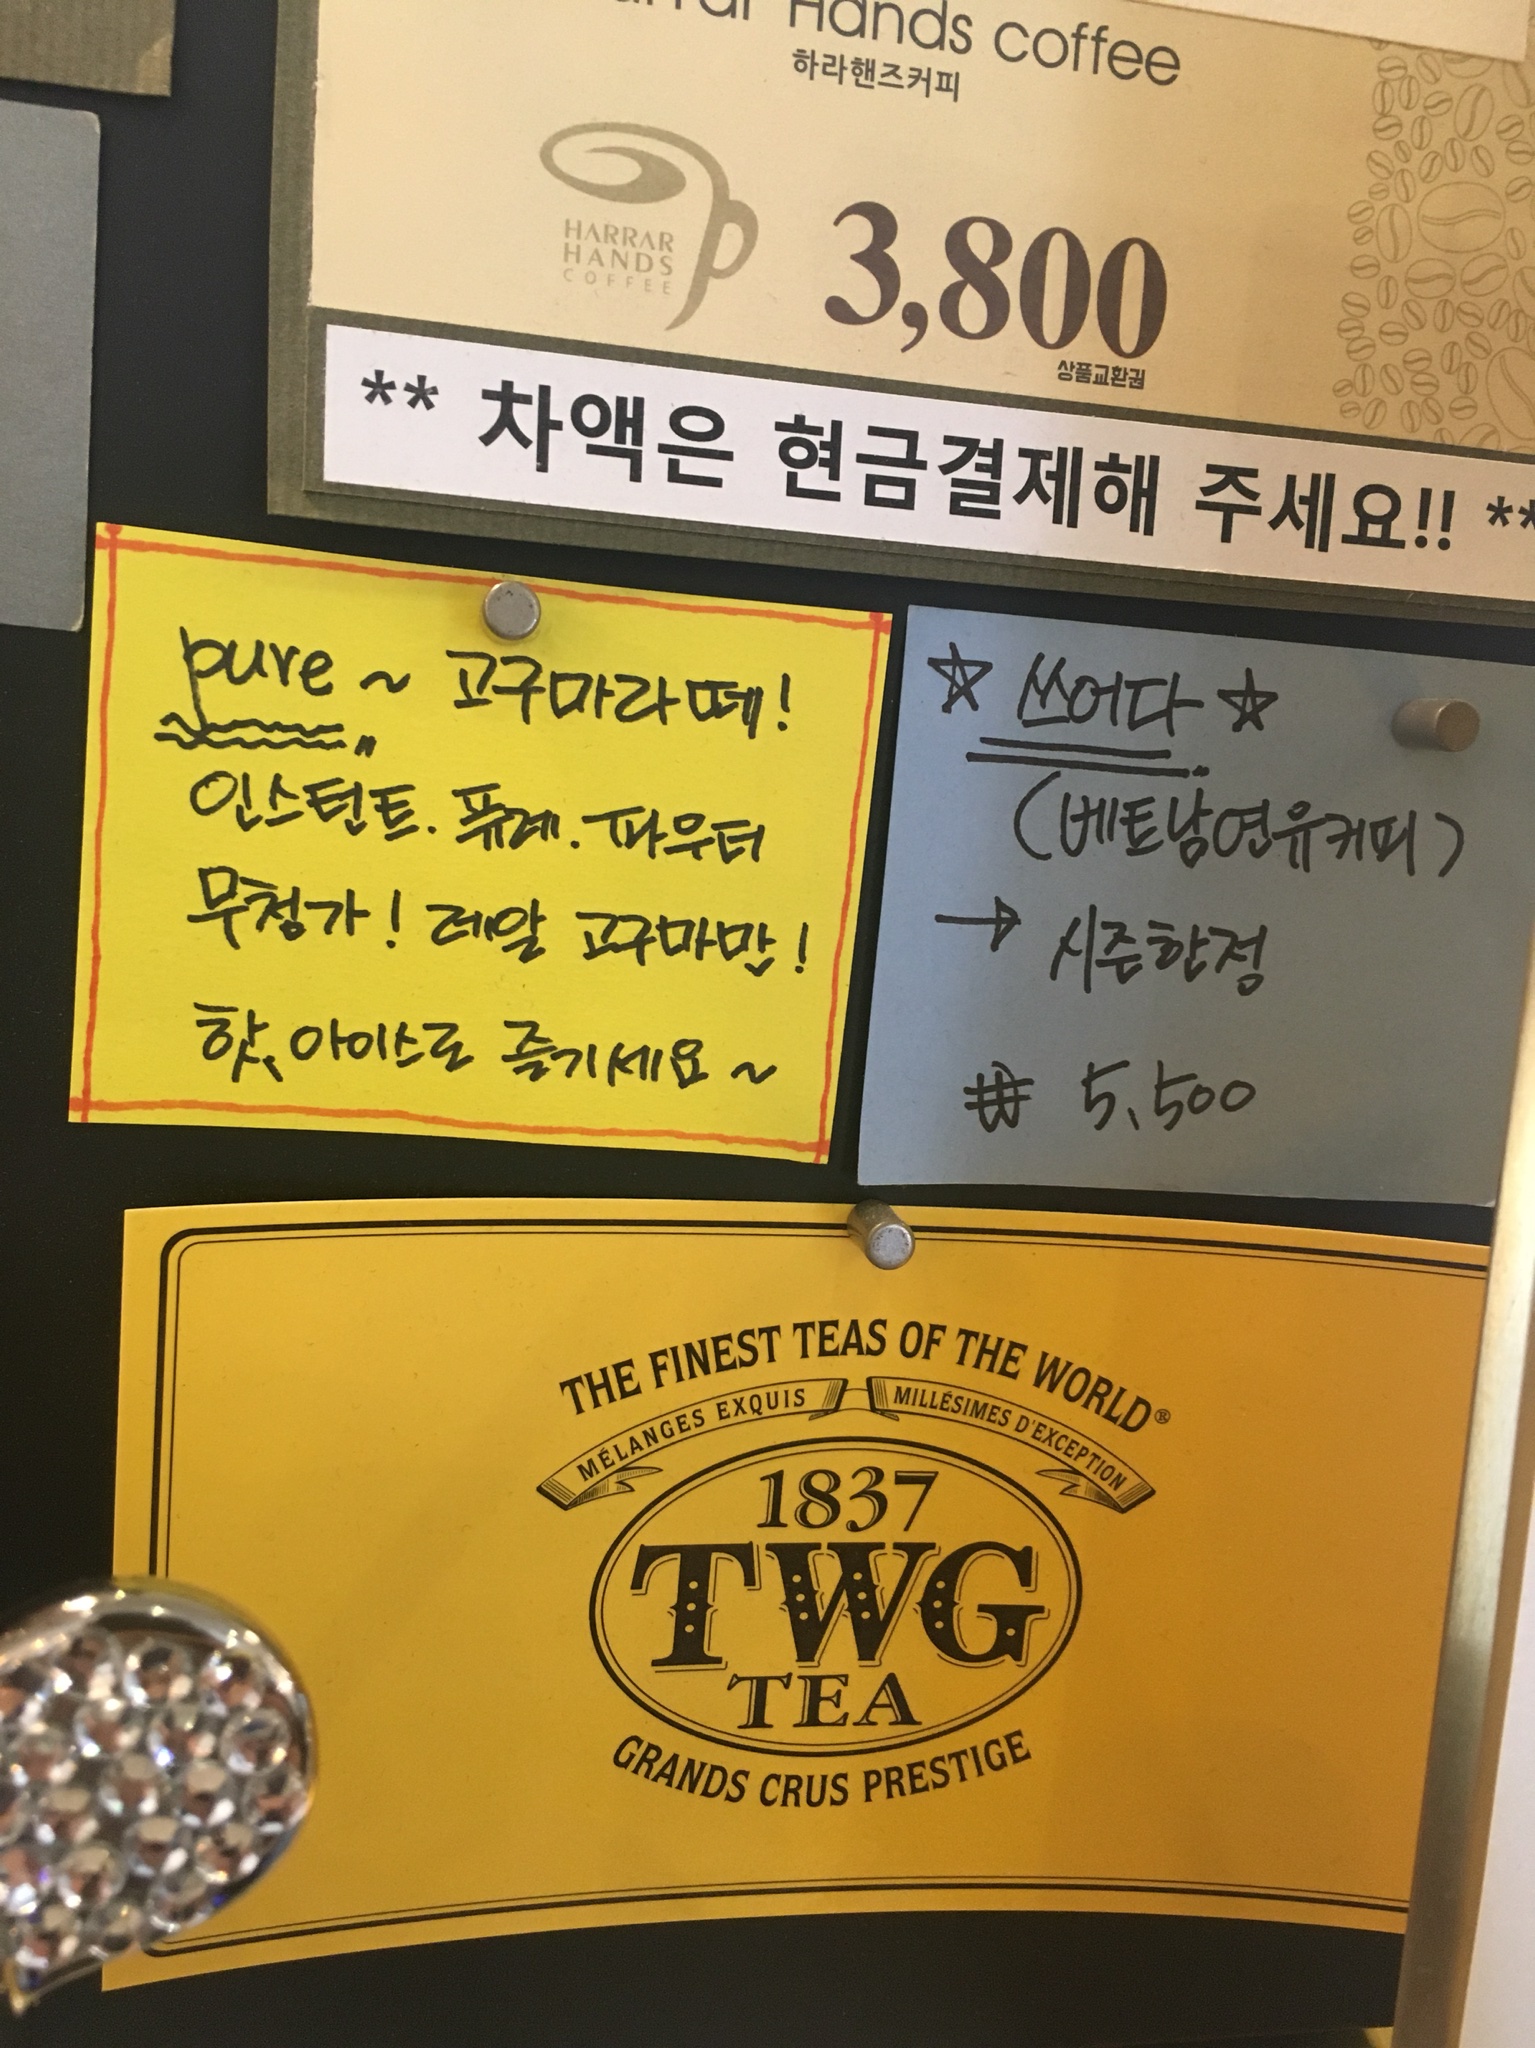 Hands coffee
하라핸즈커피
HARRAR
HANDS
COFFEE
3,800
상품교환권
** 차액은 현금결제해 주세요!! **
pure ~ 고구마라떼!
인스턴트. 퓨레. 파우더
무첨가! 레알 고구마만!
핫, 아이스로 즐기세요~
☆ 쓰어다 ☆
(베트남연유커피)
→ 시즌한정
₩ 5,500
THE FINEST TEAS OF THE WORLD®
MÉLANGES EXQUIS MILLÉSIMES D'EXCEPTION
1837
TWG
TEA
GRANDS CRUS PRESTIGE